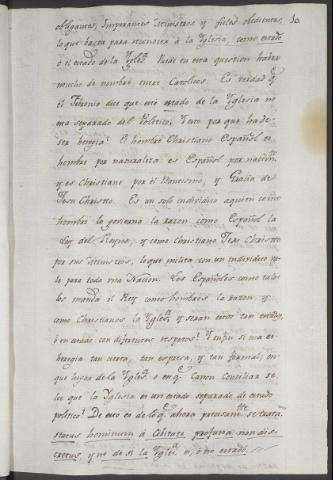 obligantes, Imperantes Ministros y fieles obedientes, 10.
lo que basta para reconocer à la Yglesia, como estado,
ô el estado de la Ygles.ª Puede en esta question haber
mucho de nombre entre Catolicos. Es verdad q.e
el Febronio dice que este estado de la Yglesia no
era separado del Politico; Pero por que ha de
ser heregia? El hombre Christiano Español es
hombre por naturaleza es Español por nacim.to
y es Christiano por el Bautismo, y Gracia de
Jesu Christo. Es un solo individuo aquien como
hombre lo govierna la razon como Español la
Ley del Reyno, y como Christiano Jesu Christo
por sus Ministros, lo que milita con un individuo mi-
lita para toda una Nacion. Los Españoles como tales
los manda el Rey como hombres la razon, y
como Christianos la Ygles.ª y seran estos tan
ô un estado con diferentes respetos? Y si esa es
heregia tan cierta, tan expresa, y tan formal; en
que lugar de la Ygles.ª o en q.e Canon Conciliar se
lee que la Yglesia es un estado separado de estado
politico? De esto es de lo q.e ahora precisam.te se trata
status hominum à Civitate profana non dis-
cretus, y no de si la Ygles.ª es, ô no estado.